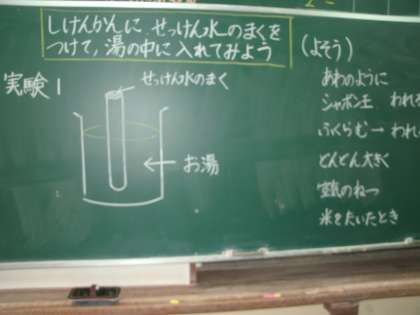 しけんかんに、せっけん水のまくを
つけて、湯の中に入れてみよう
実験1
せっけん水のまく
お湯
(よそう)
あわのように
シャボン玉 われる
ふくらむ→われ
どんどん大きく
空気のねつ
米をたいたとき